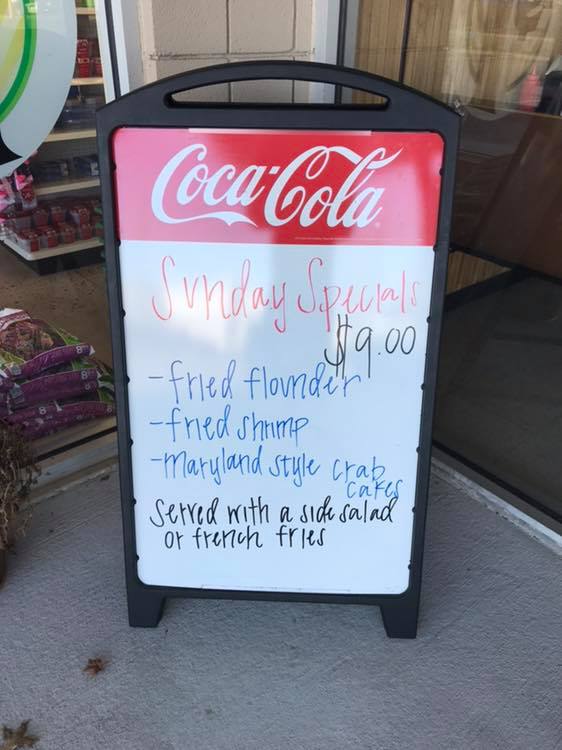 Coca-Cola
Sunday Specials
$9.00
-fried flounder
-fried shrimp
-Maryland style crab
cakes
Served with a side salad
or french fries